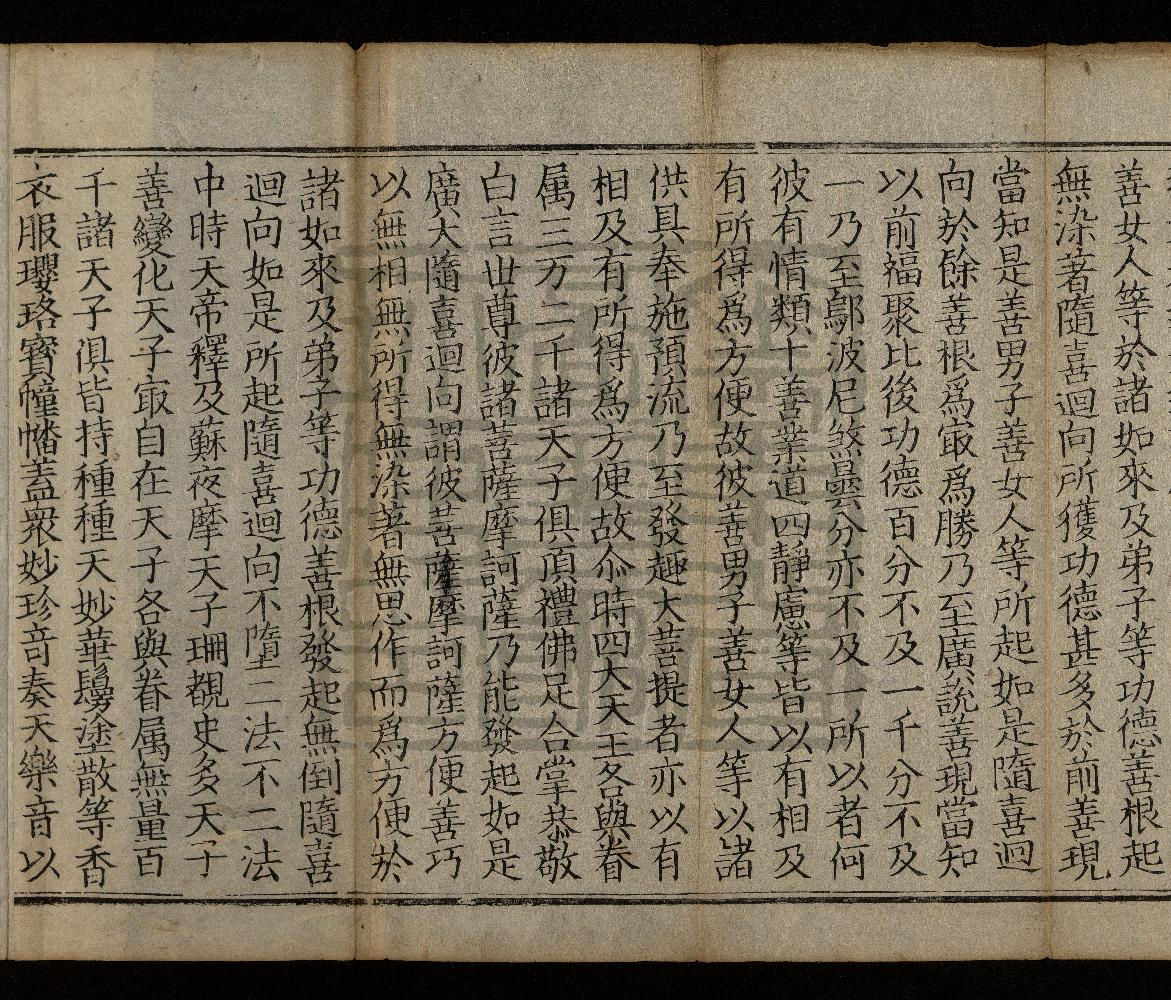 善女人等於諸如來及弟子等功德善根起
無染著隨喜迴向所獲功德甚多於前善現
當知是善男子善女人等所起如是隨喜迴
向於餘善根爲㝡爲勝乃至廣說善現當知
以前福聚比後功德百分不及一千分不及
一乃至鄔波尼煞曇分亦不及一所以者何
彼有情類十善業道四靜慮等皆以有相及
有所得爲方便故彼善男子善女人等以諸
供具奉施預流乃至發趣大菩提者亦以有
相及有所得爲方便故尒時四大天王各與眷
属三万二千諸天子俱頂禮佛足合掌恭敬
白言世尊彼諸菩薩摩訶薩乃能發起如是
廣大隨喜迴向謂彼菩薩摩訶薩方便善巧
以無相無所得無染著無思作而爲方便於
諸如來及弟子等功德善根發起無倒隨喜
迴向如是所起隨喜迴向不墮二法不二法
中時天帝釋及蘇夜摩天子珊覩史多天子
善變化天子㝡自在天子各與眷属無量百
千諸天子俱皆持種種天妙華鬘塗散等香
衣服瓔珞寶幢幡盖衆妙珍竒奏天樂音以